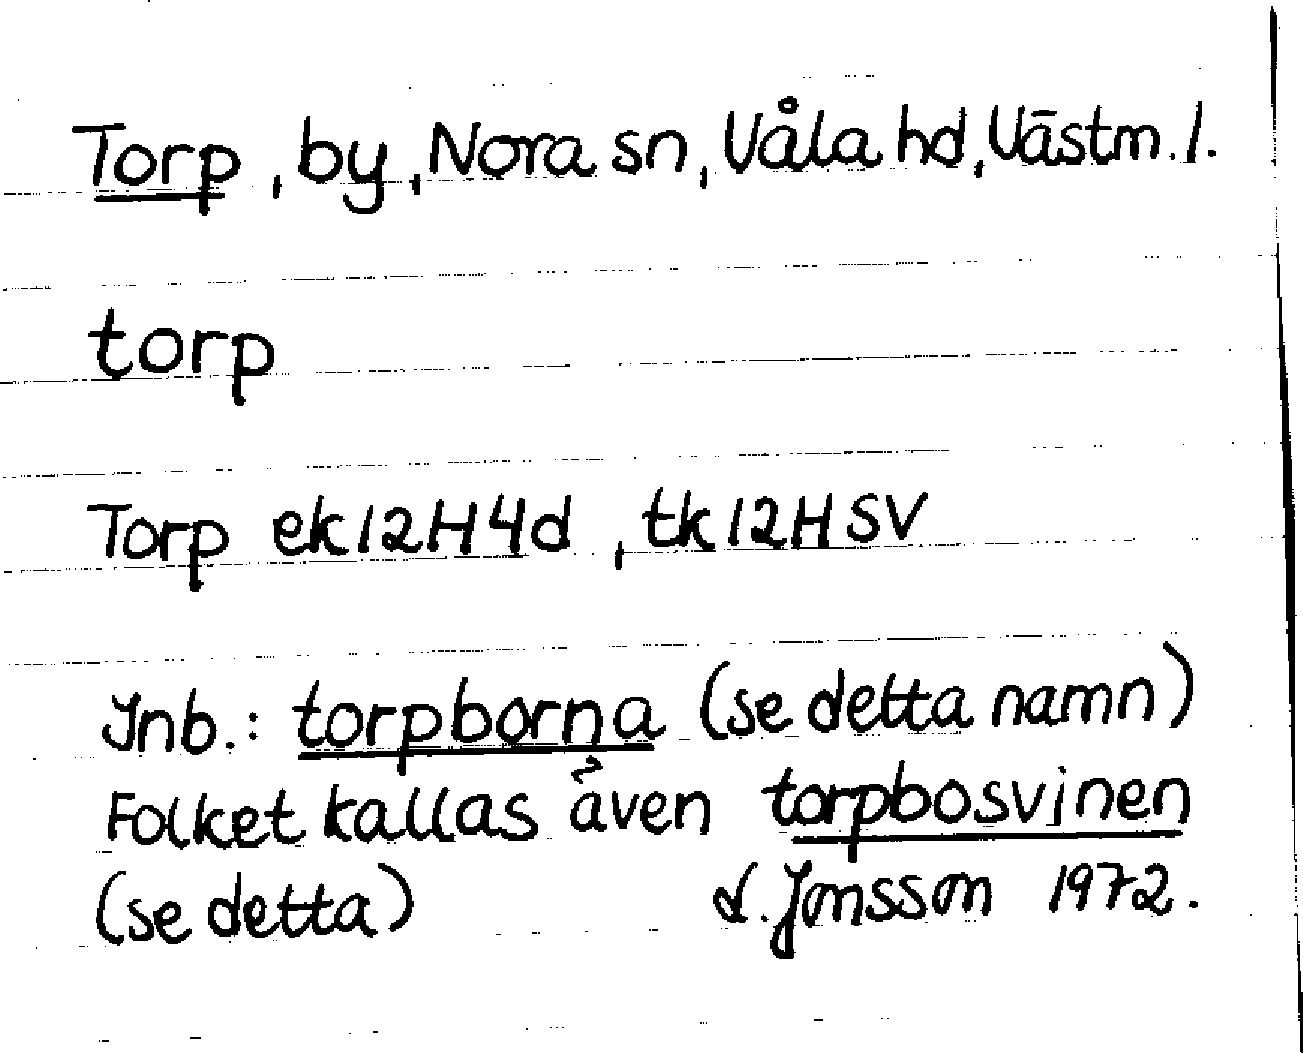 Torp, by, Nora sn, Våla hd, Västm. l.
torp
Torp ek 12H4d, tk 12H SV
Inb.: torpborna (se detta namn)
Folket kallas även torpbosvinen
(se detta) d. Jonsson 1972.